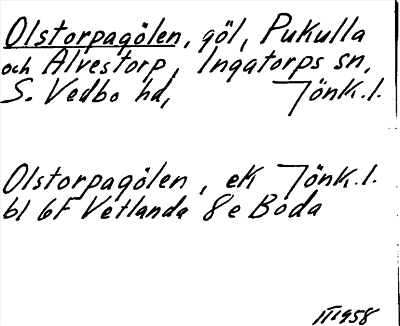 Olstorpagölen, göl, Pukulla
och Alvestorp, Ingatorps sn,
S. Vedbo hd, Jönk. l.
Olstorpagölen, ek Jönk. l.
bl 6F Vetlanda 8e Boda
III 1958